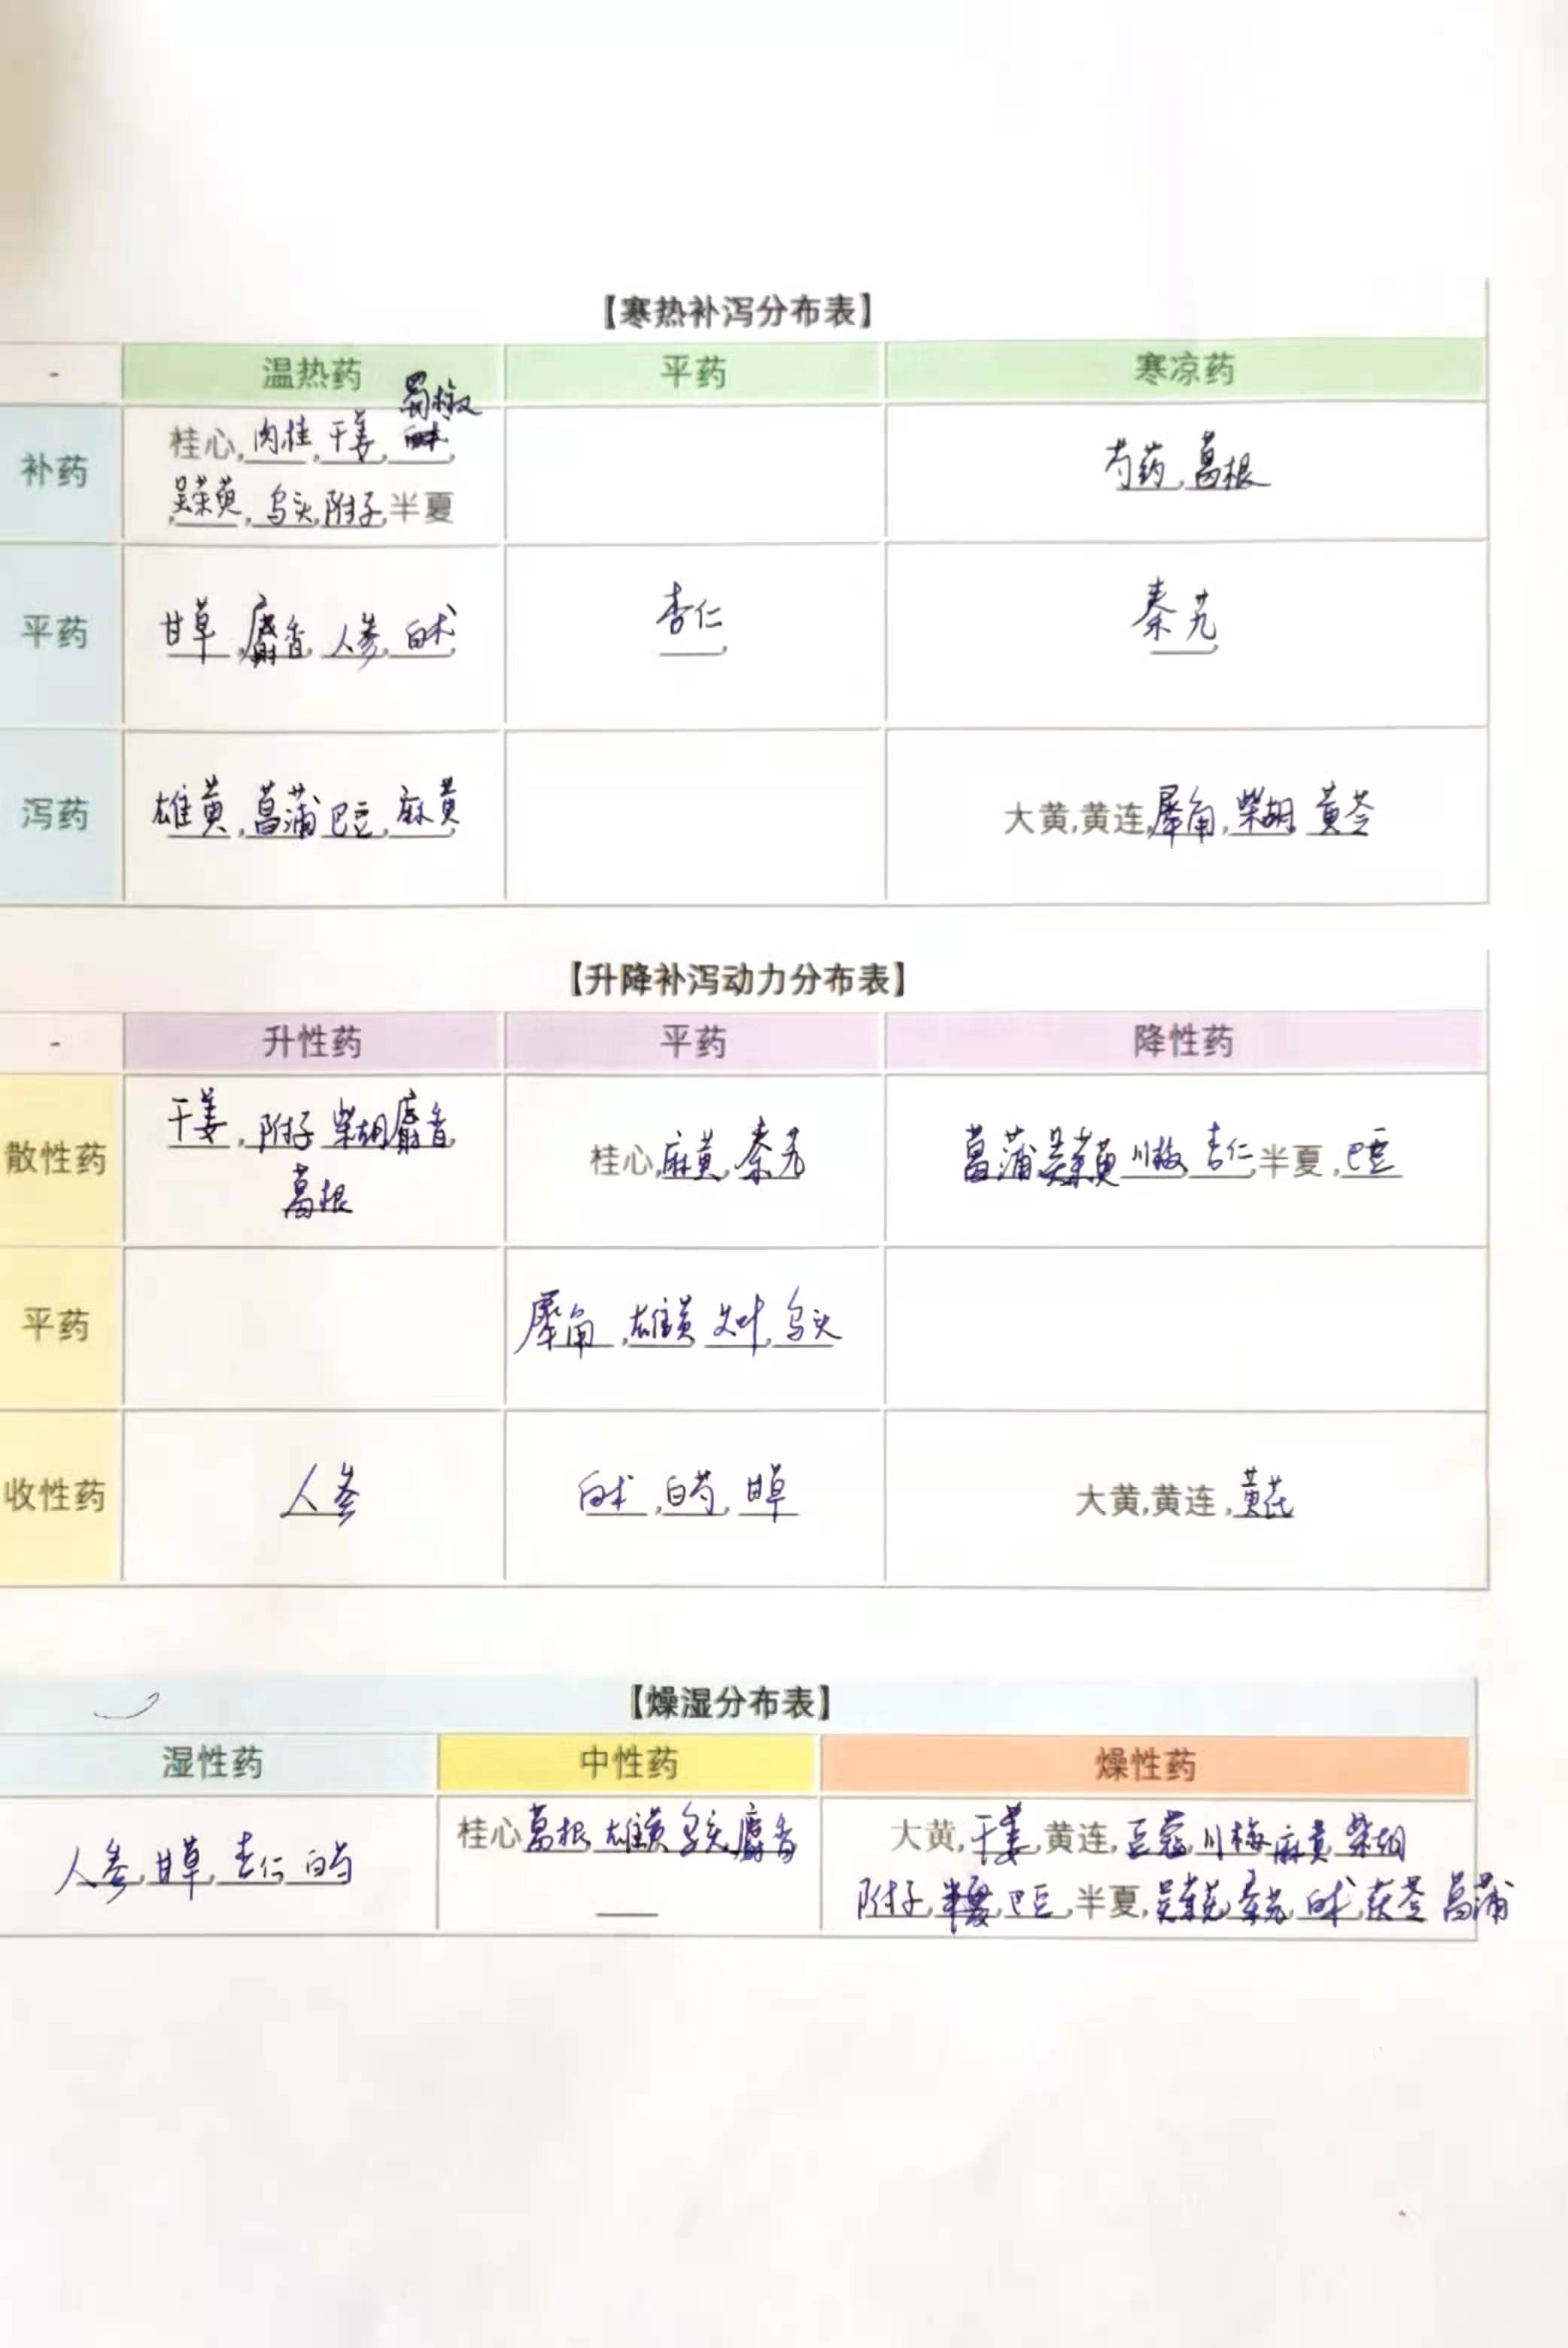 【寒热补泻分布表】
- 温热药 平药 寒凉药
蜀椒
补药 桂心,肉桂,干姜, 芍药,葛根
吴茱萸,乌头,附子,半夏
平药 甘草,麝香,人参,白术 杏仁, 秦艽,
泻药 雄黄,菖蒲,巴豆,麻黄 大黄,黄连,犀角,柴胡,黄芩
【升降补泻动力分布表】
- 升性药 平药 降性药
散性药 干姜,附子,柴胡,麝香, 桂心,麻黄,秦艽 菖蒲,吴茱萸,川椒,杏仁,半夏,巴豆
葛根
平药 犀角,雄黄,艾叶,乌头
收性药 人参 白术,白芍,甘草 大黄,黄连,黄芪
【燥湿分布表】
湿性药 中性药 燥性药
人参,甘草,杏仁,白芍 桂心,葛根,雄黄,乌头,麝香 大黄,干姜,黄连,豆蔻,川梅,麻黄,柴胡
附子,巴豆,半夏,吴茱萸,秦艽,白术,茯苓,菖蒲